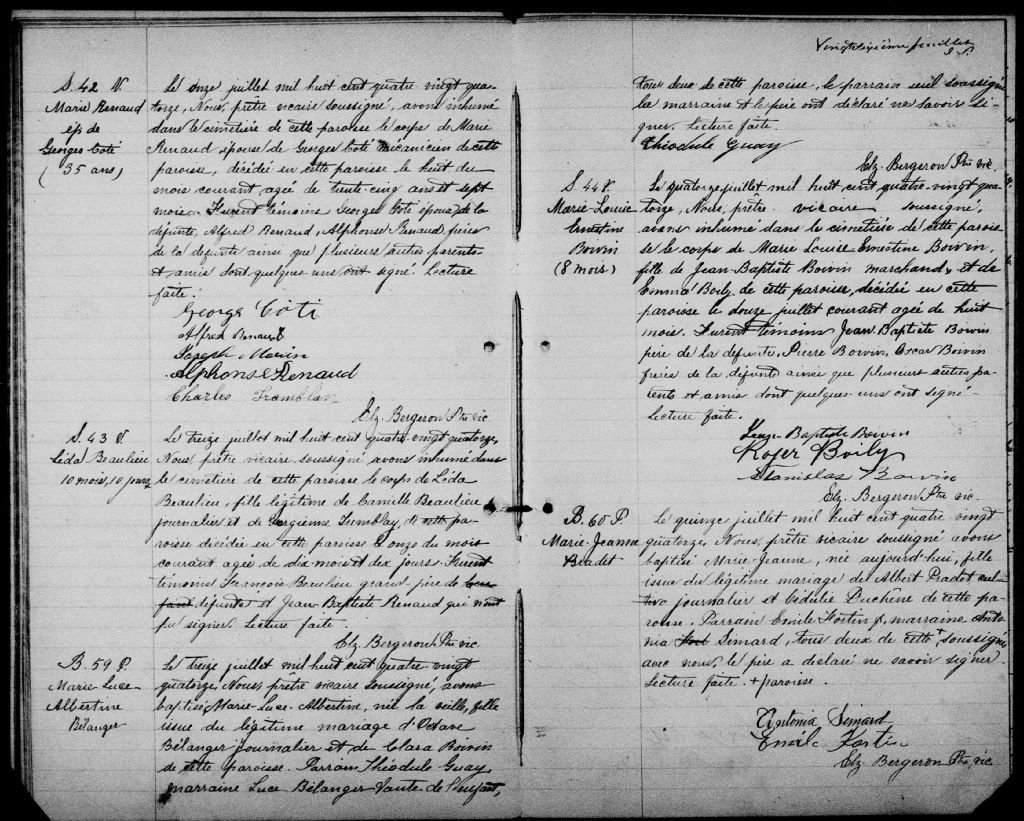 S. 42 V.
Marie Renaud
ép. de
Georges Coté
(35 ans)
Le onze juillet mil huit cent quatre vingt qua-
torze, Nous, prêtre vicaire soussigné, avons inhumé
dans le cimetière de cette paroisse le corps de Marie
Renaud épouse de Georges Coté mécanicien de cette
paroisse, décédée en cette paroisse le huit du
mois courant agée de trente-cinq ans et sept
mois. Furent témoins Georges Coté époux de la
défunte, Alfred Renaud, Alphonse Renaud, frères
de la défunte ainsi que plusieurs autres parents
et amis dont quelques uns ont signé. Lecture
faite.
George Coté
Alfred Renaud
Joseph Morin
Alphonse Renaud
Charles Tremblay
Elz. Bergeron Ptre vic.
S. 43 V.
Léda Beaulieu
10 mois, 10 jours
Le treize juillet mil huit cent quatre-vingt quatorze,
Nous prêtre vicaire soussigné avons inhumé dans
le cimetière de cette paroisse le corps de Léda
Beaulieu, fille légitime de Camille Beaulieu
journalier et de Tremblay, de cette pa-
roisse décédée en cette paroisse le onze du mois
courant agée de dix mois et dix jours. Furent
témoins François Beaulieu grand père de
défunte et Jean-Baptiste Renaud qui n'ont
pu signer. Lecture faite.
Elz. Bergeron Ptre vic
B. 59 P.
Marie-Luce-
Albertine
Bélanger
Le treize juillet mil huit cent quatre-vingt
quatorze, Nous prêtre vicaire soussigné, avons
baptisé Marie-Luce-Albertine, née la veille, fille
issue du légitime mariage d'Octave
Bélanger journalier et de Clara Boivin
de cette paroisse. Parrain Théodule Guay,
marraine Luce Bélanger tante de l'enfant,
Vingtsixième feuillet
tous deux de cette paroisse, le parrain seul soussigné
la marraine et le père ont déclaré ne savoir si-
gner. Lecture faite.
Théodule Guay
Elz. Bergeron Ptre vic.
S. 44 V.
Marie-Louise
Ernestine
Boivin
(8 mois)
Le quatorze juillet mil huit cent quatre-vingt qua-
torze, Nous, prêtre vicaire soussigné,
avons inhumé dans le cimetière de cette parois-
se le corps de Marie Louise Ernestine Boivin,
fille de Jean-Baptiste Boivin marchand, et de
Emma Boily de cette paroisse, décédée en cette
paroisse le douze juillet courant agée de huit
mois. Furent témoins Jean Baptiste Boivin
père de la défunte, Pierre Boivin, Oscar Boivin
frères de la défunte ainsi que plusieurs autres pa-
rents et amis dont quelques-uns ont signé.
Lecture faite.
Jean-Baptiste Boivin
Roger Boily
Stanislas Boivin
Elz. Bergeron Ptre vic.
B. 60 P.
Marie-Jeanne
Bradet
Le quinze juillet mil huit cent quatre-vingt
quatorze, Nous, prêtre vicaire soussigné avons
baptisé Marie-Jeanne, née aujourd'hui, fille
issue du légitime mariage de Albert Pradet, cul-
journalier et Eédulie Duchêne de cette pa-
roisse. Parrain Emile Fortin, marraine Anto-
nia Simard, tous deux de cette + soussignés
avec nous, le père a déclaré ne savoir signer
Lecture faite. + paroisse.
Antonia Simard
Emile Fortin
Elz. Bergeron Ptre vic